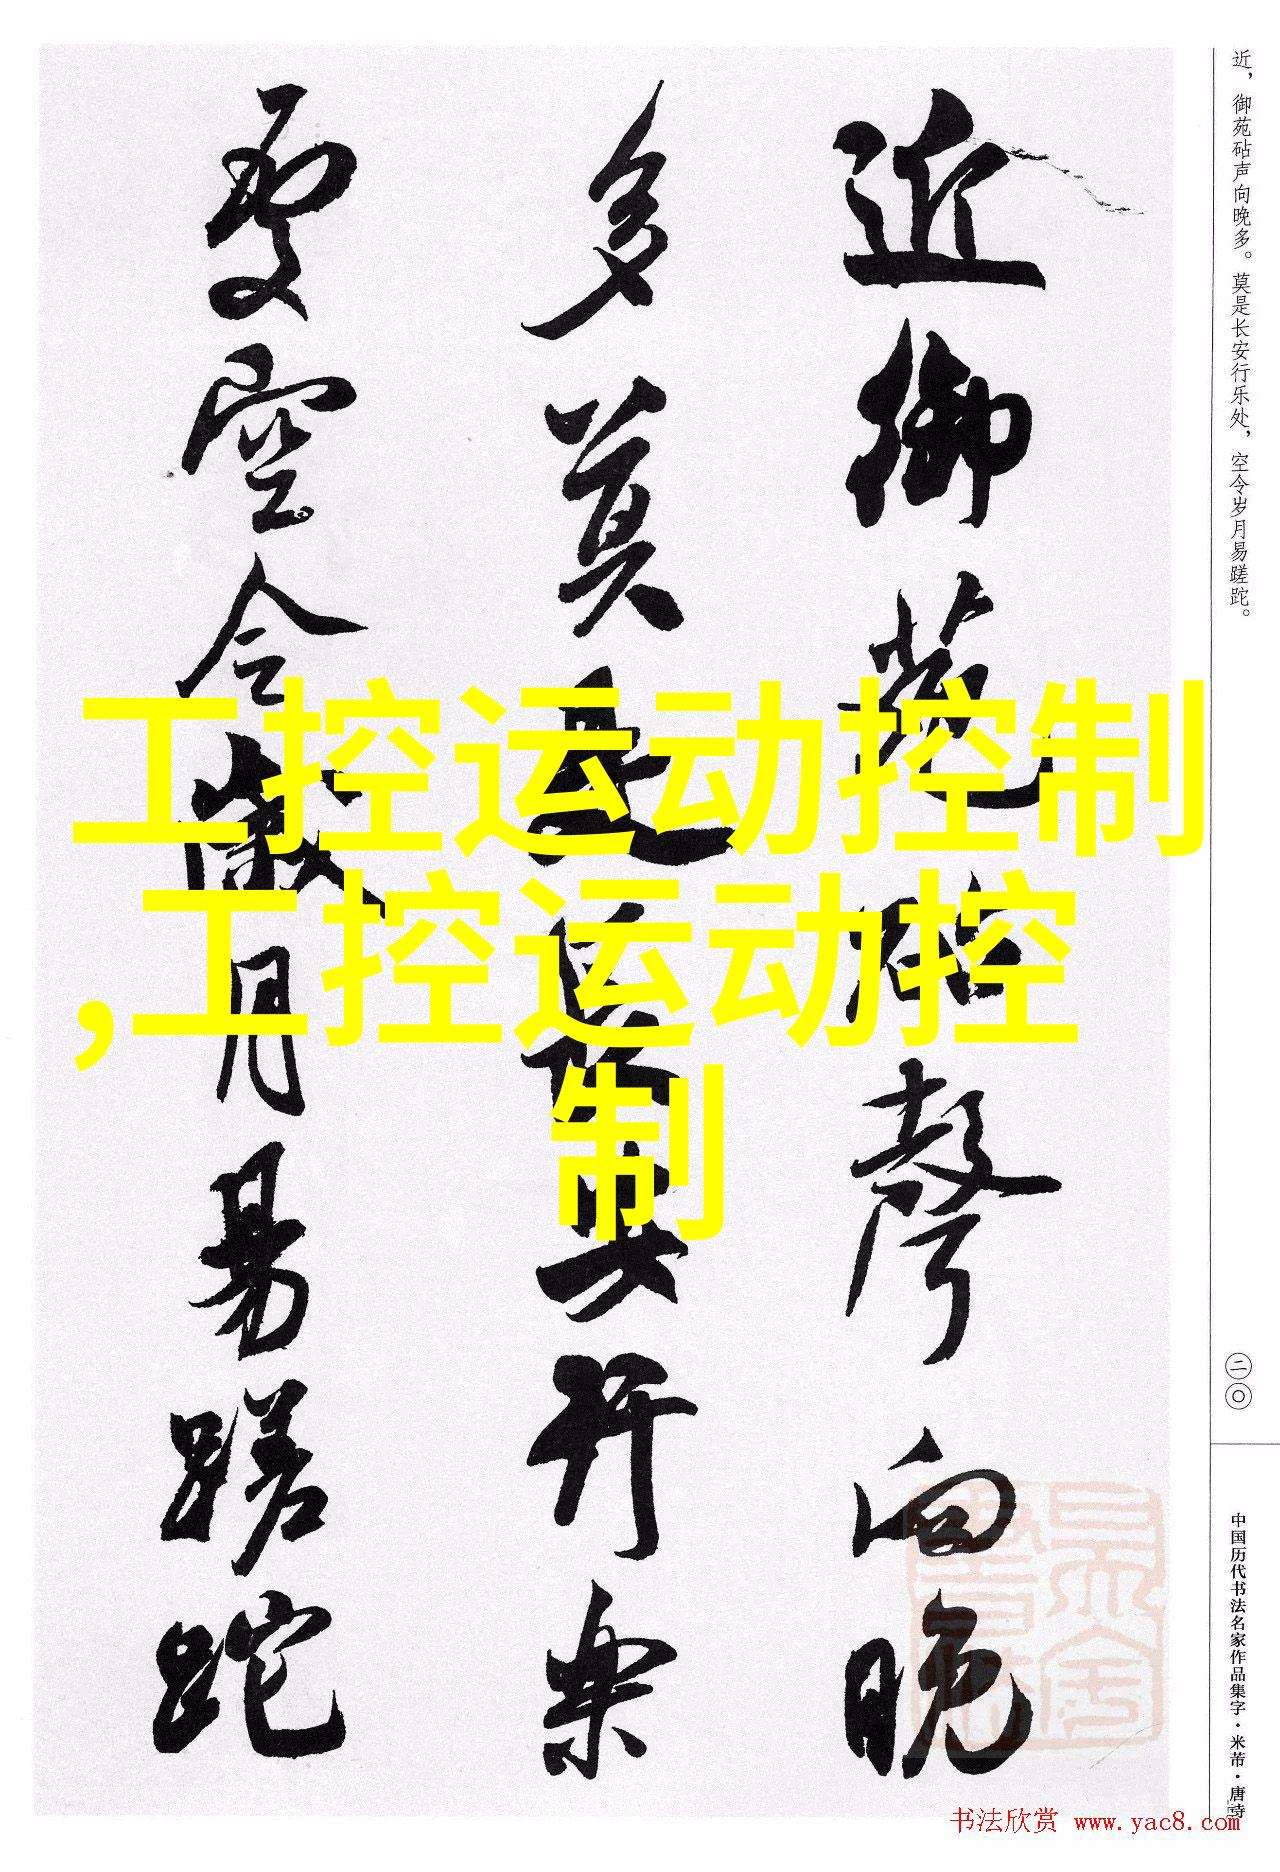 近，御苑砧声向晚多。莫是长安行乐处，空令岁月易蹉跎。
近御苑砧聲向晚
多莫是長安行樂
處空令歲月易蹉跎
工控运动控制
,工控运动控
制
二〇
中国历代书法名家作品集字·米芾·唐诗
书法欣赏 www.yac8.com